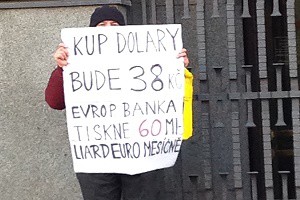 KUP DOLARY
BUDE 38 KČ
EVROP BANKA
TISKNE 60 MI-
LIARD EURO MĚSÍČNĚ